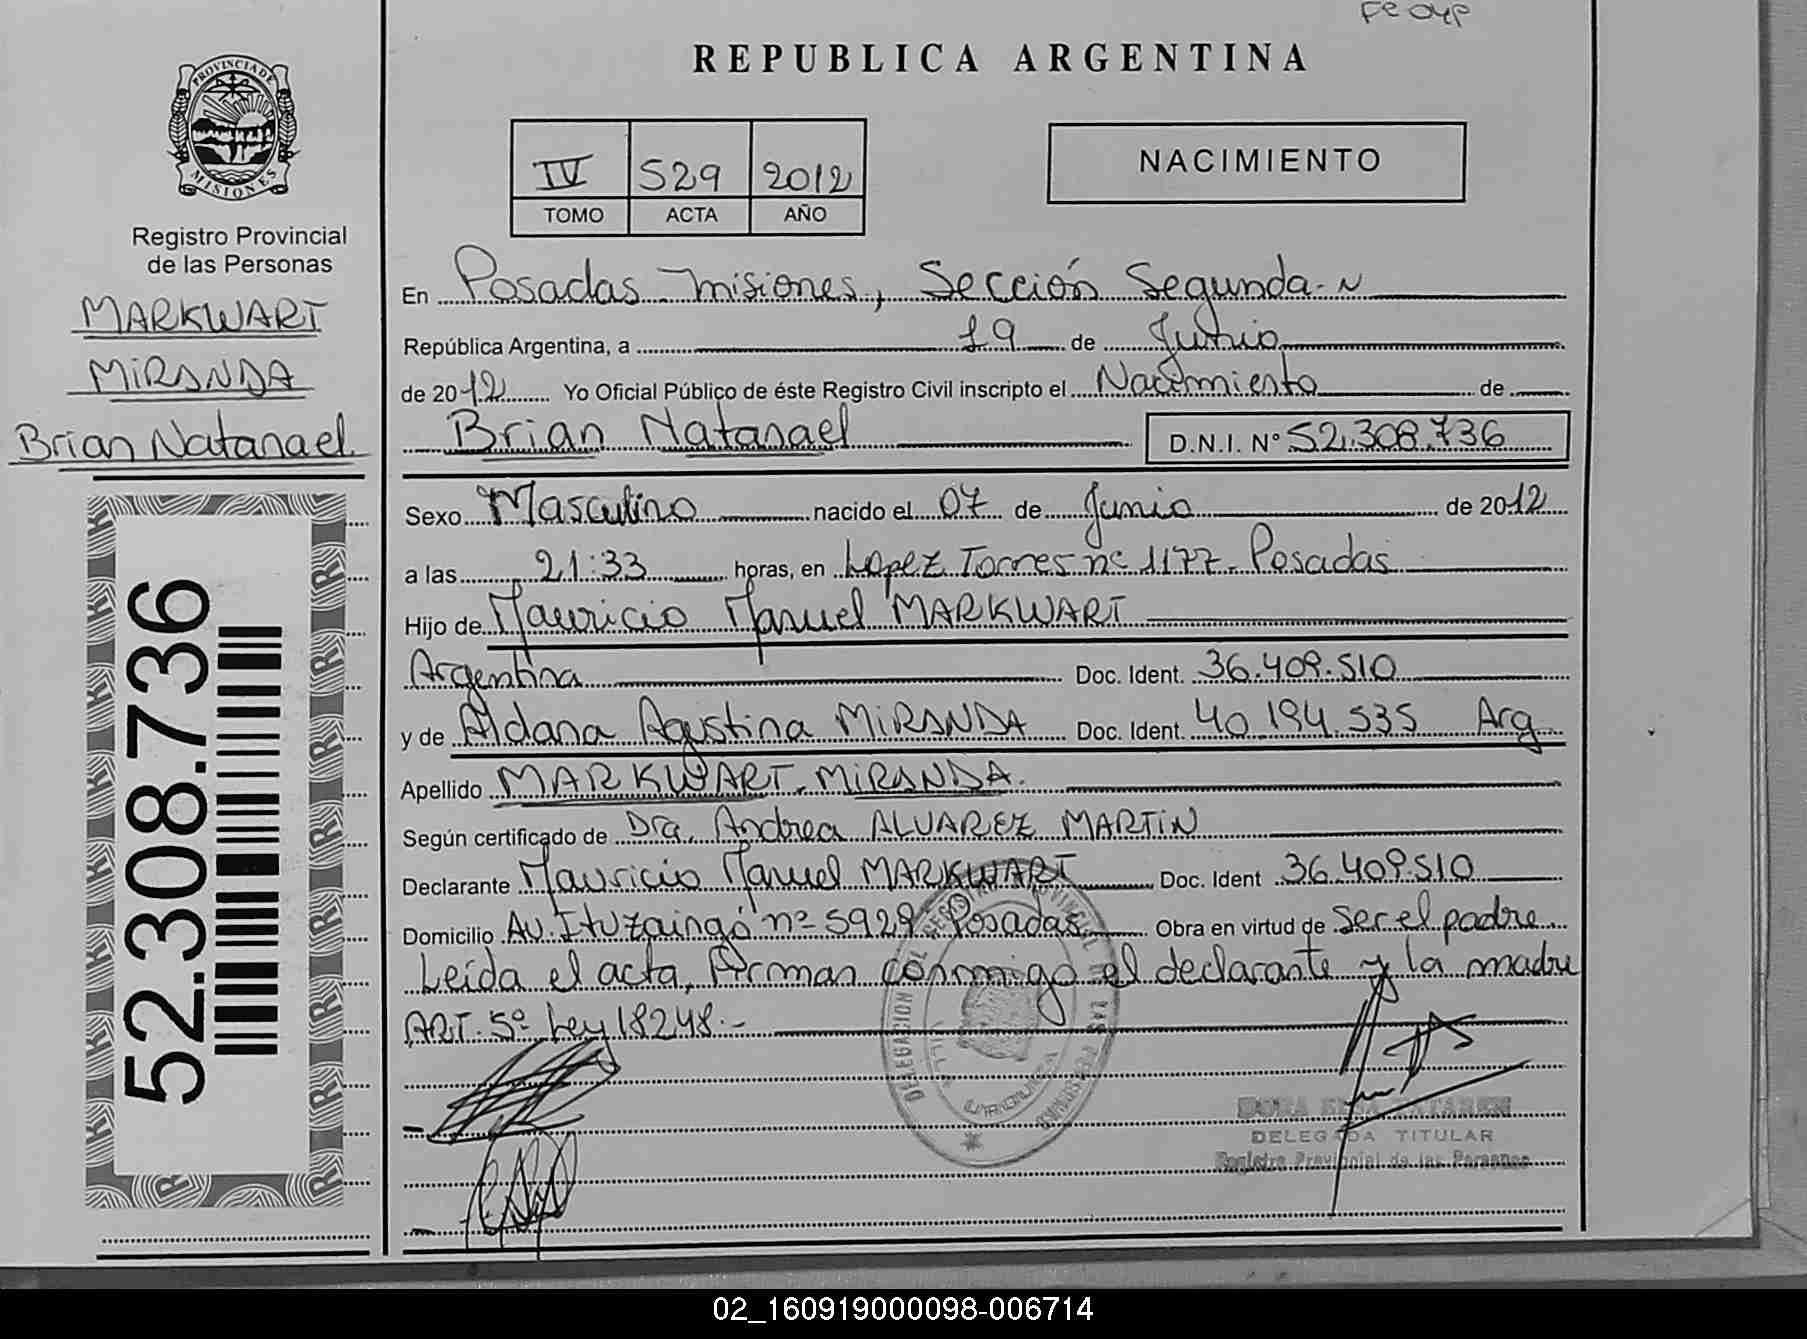 PROVINCIA DE
MISIONES
Registro Provincial
de las Personas
MARKWART
MIRANDA
Brian Natanael
52.308.736
REPUBLICA ARGENTINA
IV 529 2012
TOMO ACTA AÑO
NACIMIENTO
En Posadas Misiones, Sección Segunda
República Argentina, a 19 de Junio
de 2012 Yo Oficial Público de éste Registro Civil inscripto el Nacimiento de
Brian Natanael D.N.I. N° 52.308.736
Sexo Masculino nacido el 07 de Junio de 2012
a las 21:33 horas, en Lopez Torres nº 1177 - Posadas
Hijo de Mauricio Manuel MARKWART
Argentina Doc. Ident. 36.409.510
y de Aldana Agustina MIRANDA Doc. Ident. 40.194.535 Arg
Apellido MARKWART MIRANDA.
Según certificado de Dra. Andrea ALVAREZ MARTIN
Declarante Mauricio Manuel MARKWART Doc. Ident 36.409.510
Domicilio Av. Ituzaingó nº 5929 Posadas Obra en virtud de ser el padre
Leída el acta, firman conmigo el declarante y la madre
ART. 5º Ley 18248.-
DELEGACION DEL REGISTRO PROVINCIAL DE LAS PERSONAS
VILLA URQUIZA
DELEGADA TITULAR
Registro Provincial de las Personas
02_160919000098-006714